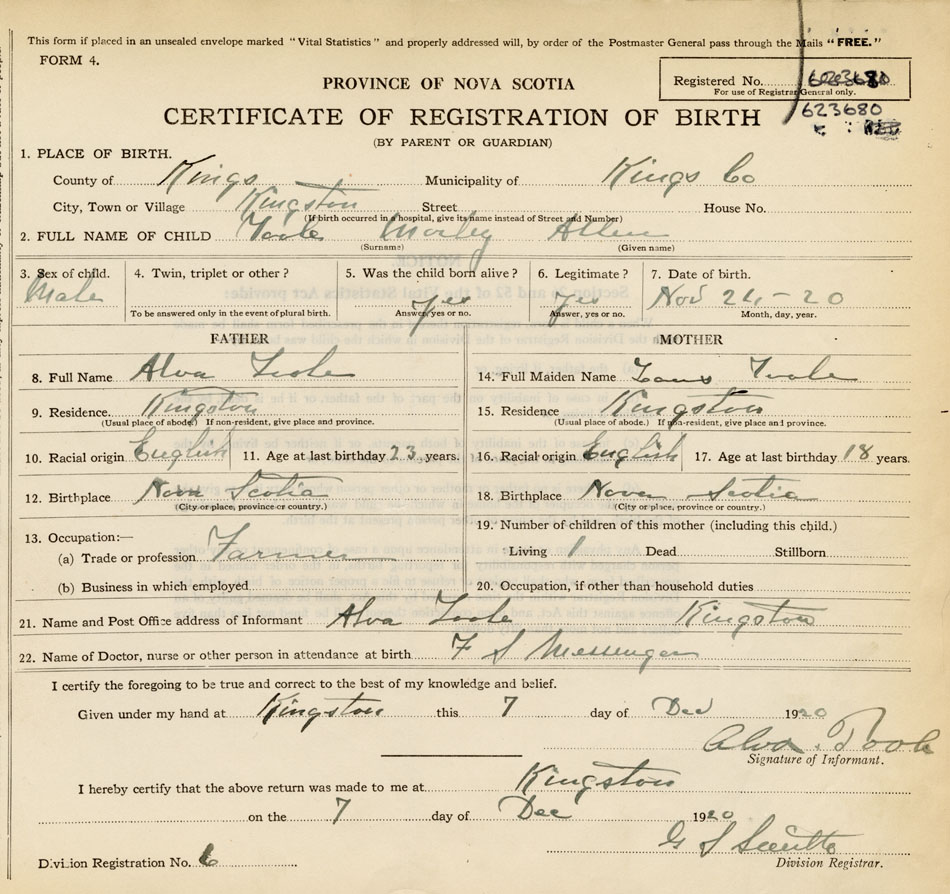 This form if placed in an unsealed envelope marked "Vital Statistics" and properly addressed will, by order of the Postmaster General pass through the Mails "FREE."
FORM 4.
PROVINCE OF NOVA SCOTIA
Registered No.
For use of Registrar General only.
CERTIFICATE OF REGISTRATION OF BIRTH
623680
(BY PARENT OR GUARDIAN)
1. PLACE OF BIRTH.
County of Kings Municipality of Kings Co
City, Town or Village Kingston Street House No.
(If birth occurred in a hospital, give its name instead of Street and Number)
2. FULL NAME OF CHILD Toole Morley Allen
(Surname) (Given name)
3. Sex of child. 4. Twin, triplet or other? 5. Was the child born alive? 6. Legitimate? 7. Date of birth.
Male Yes Yes Nov 24-20
To be answered only in the event of plural birth. Answer, yes or no. Answer, yes or no. Month, day, year.
FATHER MOTHER
8. Full Name Alva Toole 14. Full Maiden Name Toole
9. Residence. Kingston 15. Residence Kingston
(Usual place of abode.) If non-resident, give place and province. (Usual place of abode.) If non-resident, give place and province.
10. Racial origin English 11. Age at last birthday 23 years. 16. Racial origin English 17. Age at last birthday 18 years.
12. Birthplace Nova Scotia 18. Birthplace Nova Scotia
(City or place, province or country.) (City or place, province or country.)
13. Occupation:— 19. Number of children of this mother (including this child.)
(a) Trade or profession Farmer Living 1 Dead Stillborn
(b) Business in which employed 20. Occupation, if other than household duties
21. Name and Post Office address of Informant Alva Toole Kingston
22. Name of Doctor, nurse or other person in attendance at birth F S Messenger
I certify the foregoing to be true and correct to the best of my knowledge and belief.
Given under my hand at Kingston this 7 day of Dec 1920
Alva Toole
Signature of Informant.
I hereby certify that the above return was made to me at Kingston
on the 7 day of Dec 1920
G S
Division Registrar.
Division Registration No. 6